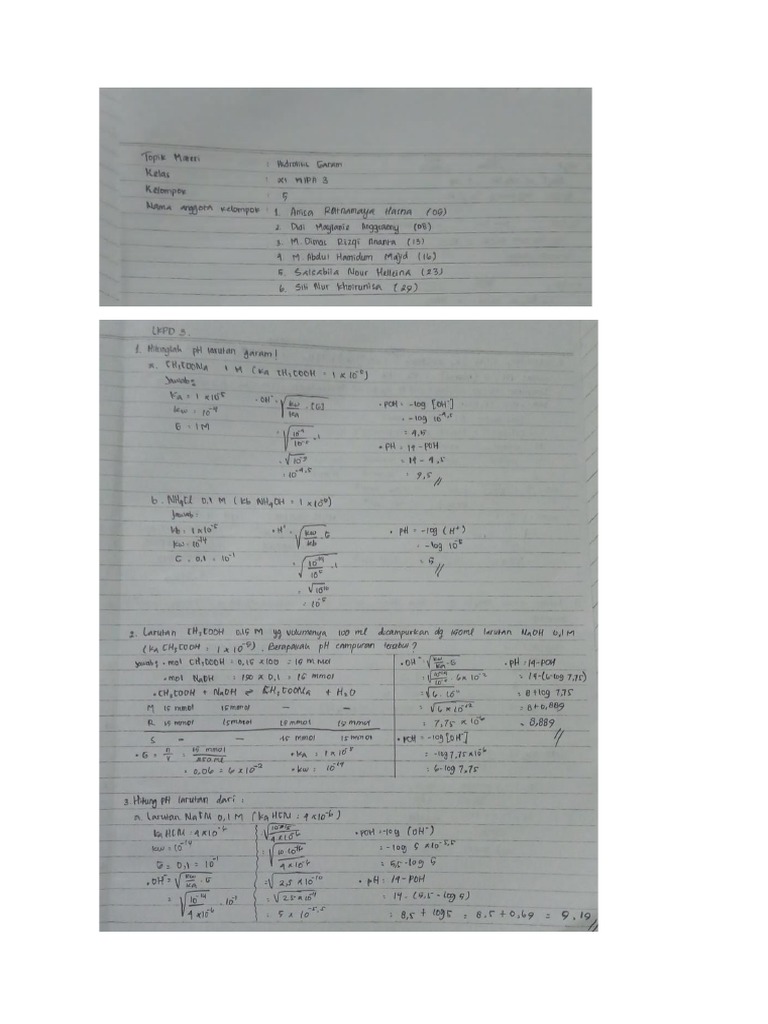 Topik Materi : Hidrolisis Garam
Kelas : XI MIPA 3
Kelompok : 5
Nama anggota kelompok : 1. Anisa Ratnamaya Hasna (06)
2. Didi Anggraeny (08)
3. M. Dimas Rizqi Ananta (13)
4. M. Abdul Hamidum Majid (16)
5. Salsabila Nour Helleina (23)
6. Siti Nur Khoirunisa (29)
LKPD 3.
1. Hitunglah pH larutan garam!
a. CH3COONa 1 M (Ka CH3COOH = 1 x 10^-5)
Jawab:
Ka = 1 x 10^-5
kw = 10^-14
G = 1 M
• OH^- = √(kw/ka . [G])
= √(10^-14/10^-5 . 1
= √10^-9
= 10^-4,5
• POH = -log [OH^-]
= -log 10^-4,5
= 4,5
• PH = 14 - POH
= 14 - 4,5
= 9,5 //
b. NH4Cl 0,1 M (kb NH4OH = 1 x 10^-5)
Jawab:
kb = 1 x 10^-5
kw = 10^-14
G = 0,1 = 10^-1
• H^+ = √(kw/kb . G
= √10^-10
= 10^-5
• pH = -log (H^+)
= -log 10^-5
= 5 //
2. Larutan CH3COOH 0,15 M yg volumenya 100 ml dicampurkan dg 150ml larutan NaOH 0,1 M
(ka CH3COOH = 1 x 10^-5). Berapakah pH campuran tersebut?
Jawab: • mol CH3COOH = 0,15 x 100 = 15 mmol
• mol NaOH = 150 x 0,1 = 15 mmol
• CH3COOH + NaOH ⇌ CH3COONa + H2O
M 15 mmol 15 mmol - -
R 15 mmol 15 mmol 15 mmol 15 mmol
S - - 15 mmol 15 mmol
• G = n/v = 15 mmol/250 ml
= 0,06 = 6 x 10^-2
• ka = 1 x 10^-5
• kw = 10^-14
• OH^- = √(kw/ka . G
= 7,75 x 10^-6
• POH = -log [OH^-]
= -log 7,75 x 10^-6
= 6 - log 7,75
• pH = 14 - POH
= 14 - (6 - log 7,75)
= 8 + log 7,75
= 8 + 0,889
= 8,889 //
3. Hitung pH larutan dari :
a. Larutan NaCN 0,1 M (ka HCN = 4 x 10^-6)
ka HCN = 4 x 10^-6
kw = 10^-14
G = 0,1 = 10^-1
• OH^- = √(kw/ka . G
= √(10^-14/4 x 10^-6 . 10^-1
= √2,5 x 10^-10
= 5 x 10^-5,5
• POH = -log (OH^-)
= -log 5 x 10^-5,5
= 5,5 - log 5
• pH = 14 - POH
= 14 - (5,5 - log 5)
= 8,5 + log 5 = 8,5 + 0,69 = 9,19 //